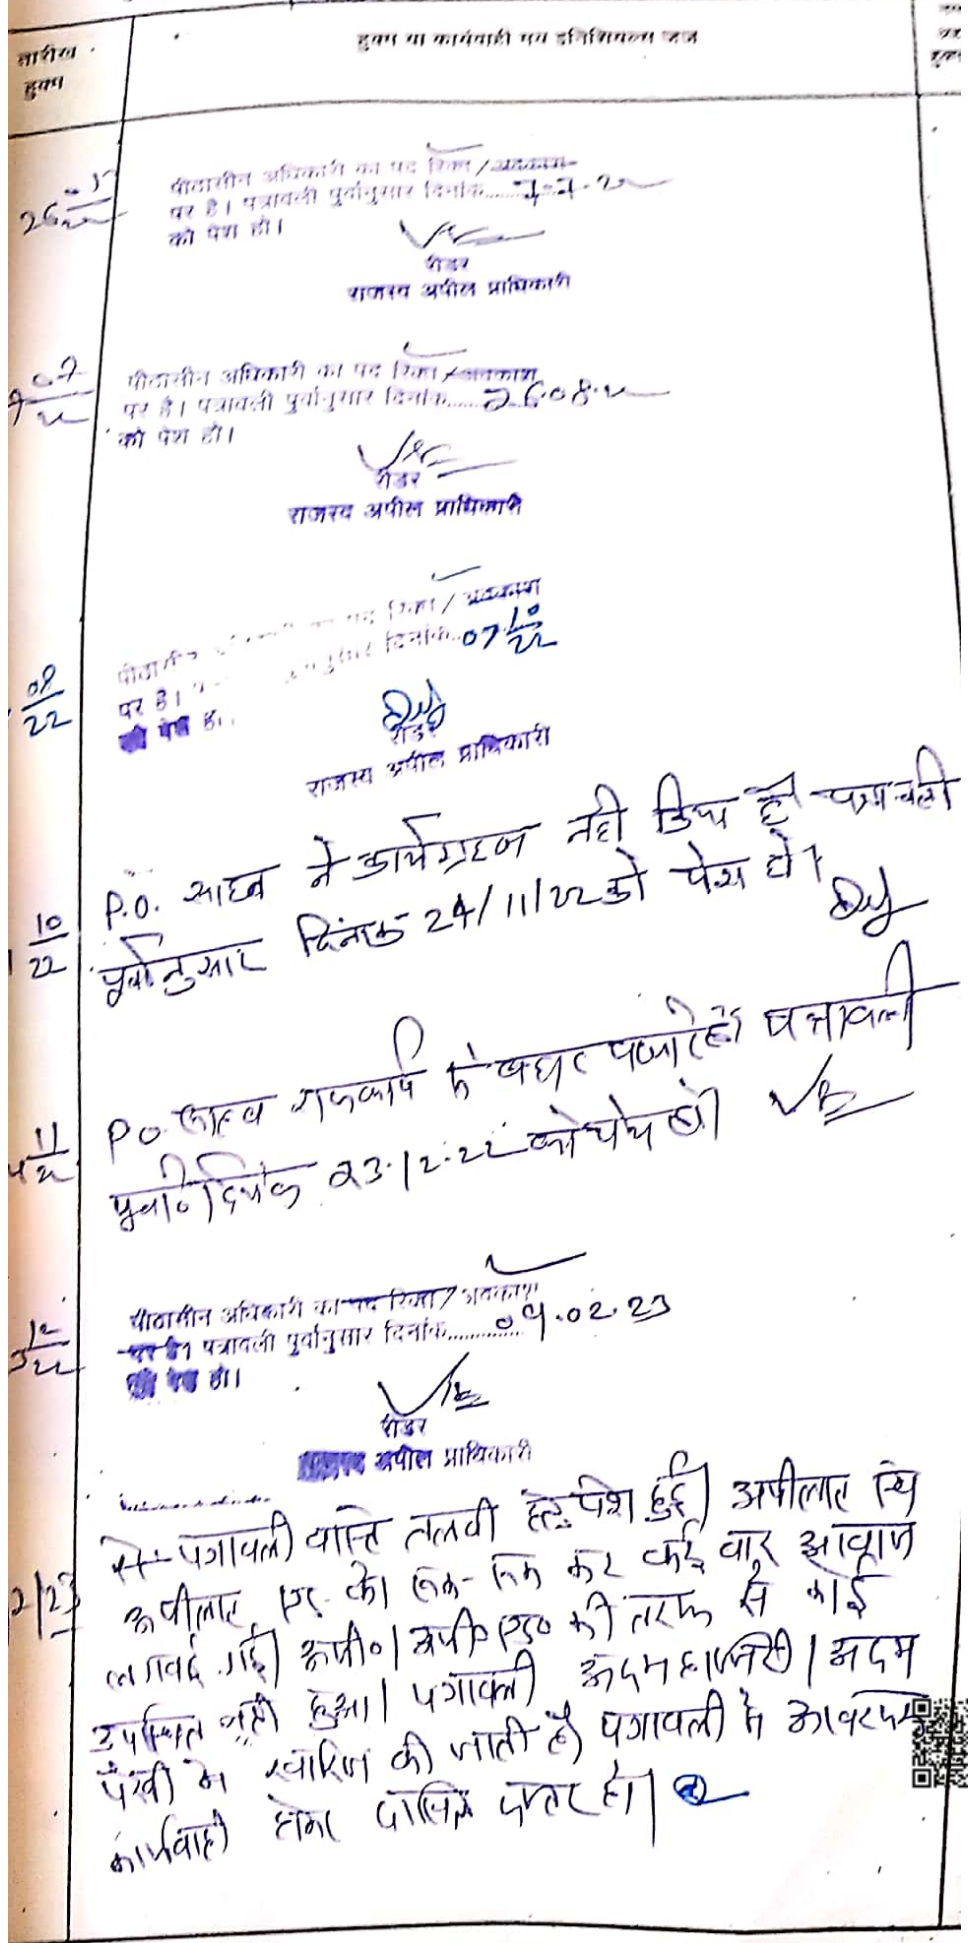 तारीख हुक्म या कार्यवाही मय इनिशियल्स जज
हुक्म
पीठासीन अधिकारी का पद रिक्त / अवकाश
26 पर है। पत्रावली पुर्वानुसार दिनांक........7.7.22
को पेश हो।
रीडर
राजस्व अपील प्राधिकारी
07 पीठासीन अधिकारी का पद रिक्त / अवकाश
पर है। पत्रावली पुर्वानुसार दिनांक........26.08.22
को पेश हो।
रीडर
राजस्व अपील प्राधिकारी
पद रिक्त / अवकाश
08/22 पर है। दिनांक..07/10/22
को पेश हो।
रीडर
राजस्व अपील प्राधिकारी
P.O. साहब ने कार्यग्रहण नही किया है पत्रावली
10/22 पूर्वानुसार दिनांक 24/11/22 को पेश हो।
P.O. साहब राजकार्य से बाहर पधारे है। पत्रावली
11/22 पूर्वा० दिनांक 23.12.22 को पेश हो।
पीठासीन अधिकारी का पद रिक्त / अवकाश
12/22 पर है। पत्रावली पुर्वानुसार दिनांक.............09.02.23
को पेश हो।
रीडर
राजस्व अपील प्राधिकारी
पत्रावली वास्ते तलबी हेतु पेश हुई। अपीलांट
2/23 अपीलांट एड. को रूक-रूक कर कई बार आवाज
लगवाई गई। अपी०/अपी० एड० की तरफ से कोई
उपस्थित नही हुआ। पत्रावली अदम हाजिरी/अदम
पैरवी में खारिज की जाती है। पत्रावली में आवश्यक
कार्यवाही होकर दाखिल दफ्तर हो।